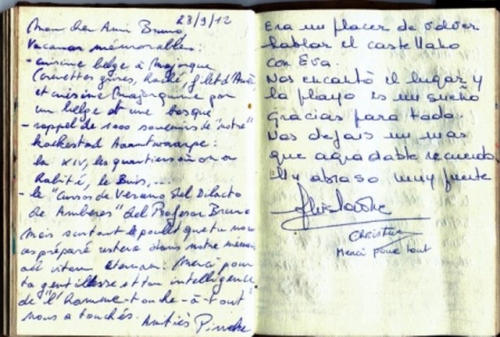 28/9/12
Mon cher Ami Bruno,
Vacances mémorables:
- cuisine belge à Majorque
et cuisine majorquine par
un belge et une basque
- rappel de 1000 souvenirs de "notre"
le XIV, les quartiers où on a
habité, le Buis, ...
- le "Cursos de Verano del Dilecto
de Amberes" del Profesor Bruno
Mais surtout le poulet que tu nous
as préparé restera dans notre
ad vitam eternam. Merci pour
ta gentillesse et ton intelligence
de "l'homme-touche-à-tout"
nous a touchés. Amitiés
Era un placer de volver
hablar el castellano
con Eva.
Nos encantó el lugar y
la playa es un sueño
Gracias para todo.
Nos dejáis un mas
que agradable recuerdo
Un abrazo muy fuerte
Christian
Merci pour tout